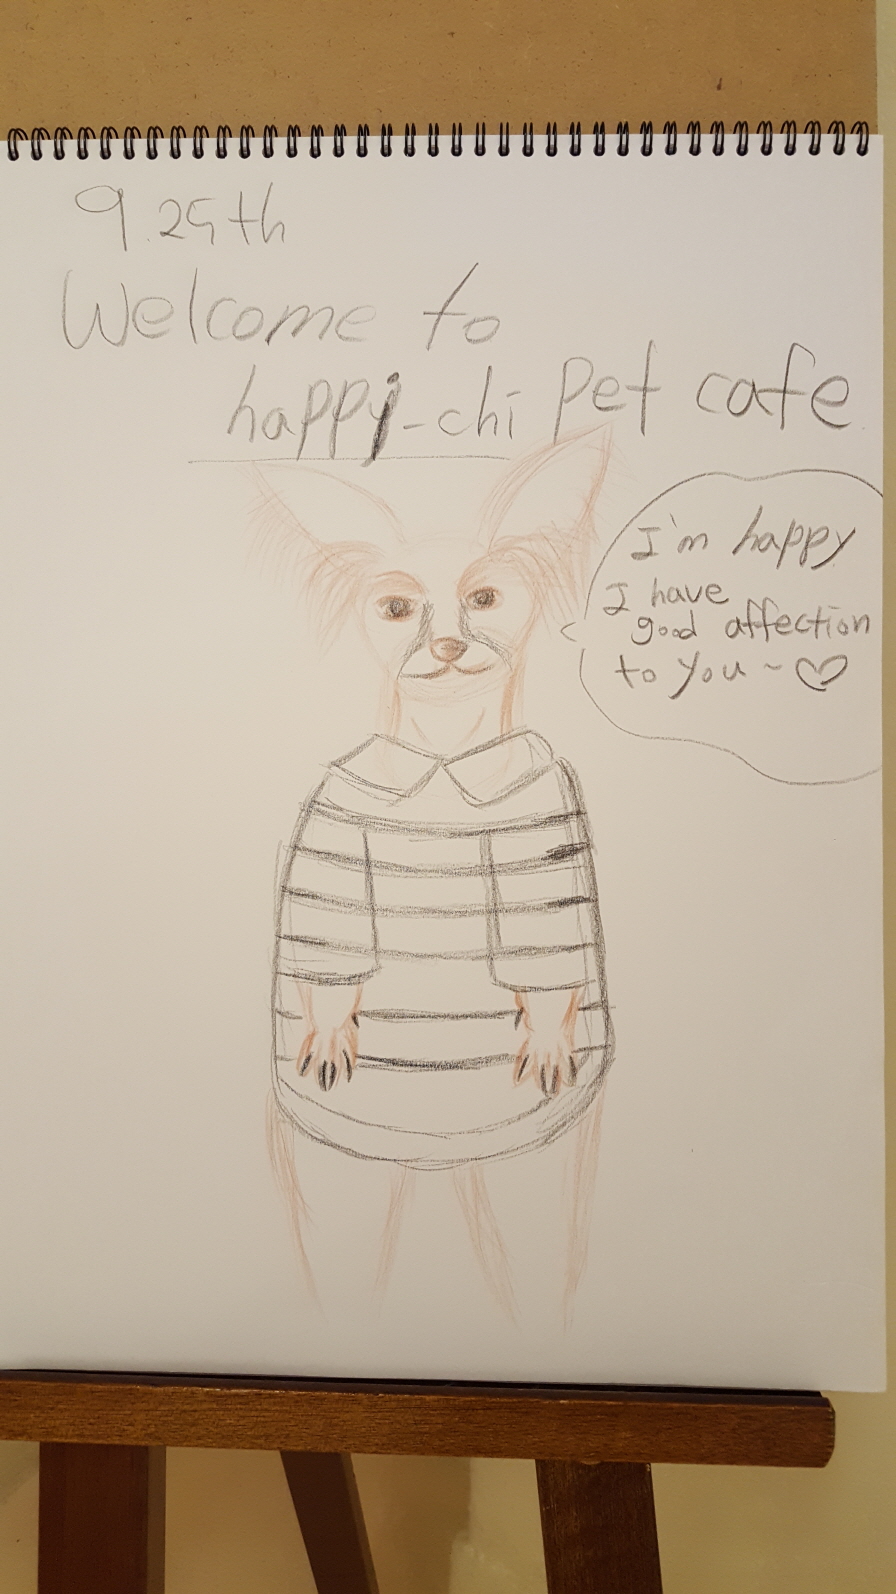 9.25th
Welcome to
happy-chi pet cafe
I'm happy
I have
good affection
to you ~ ♡